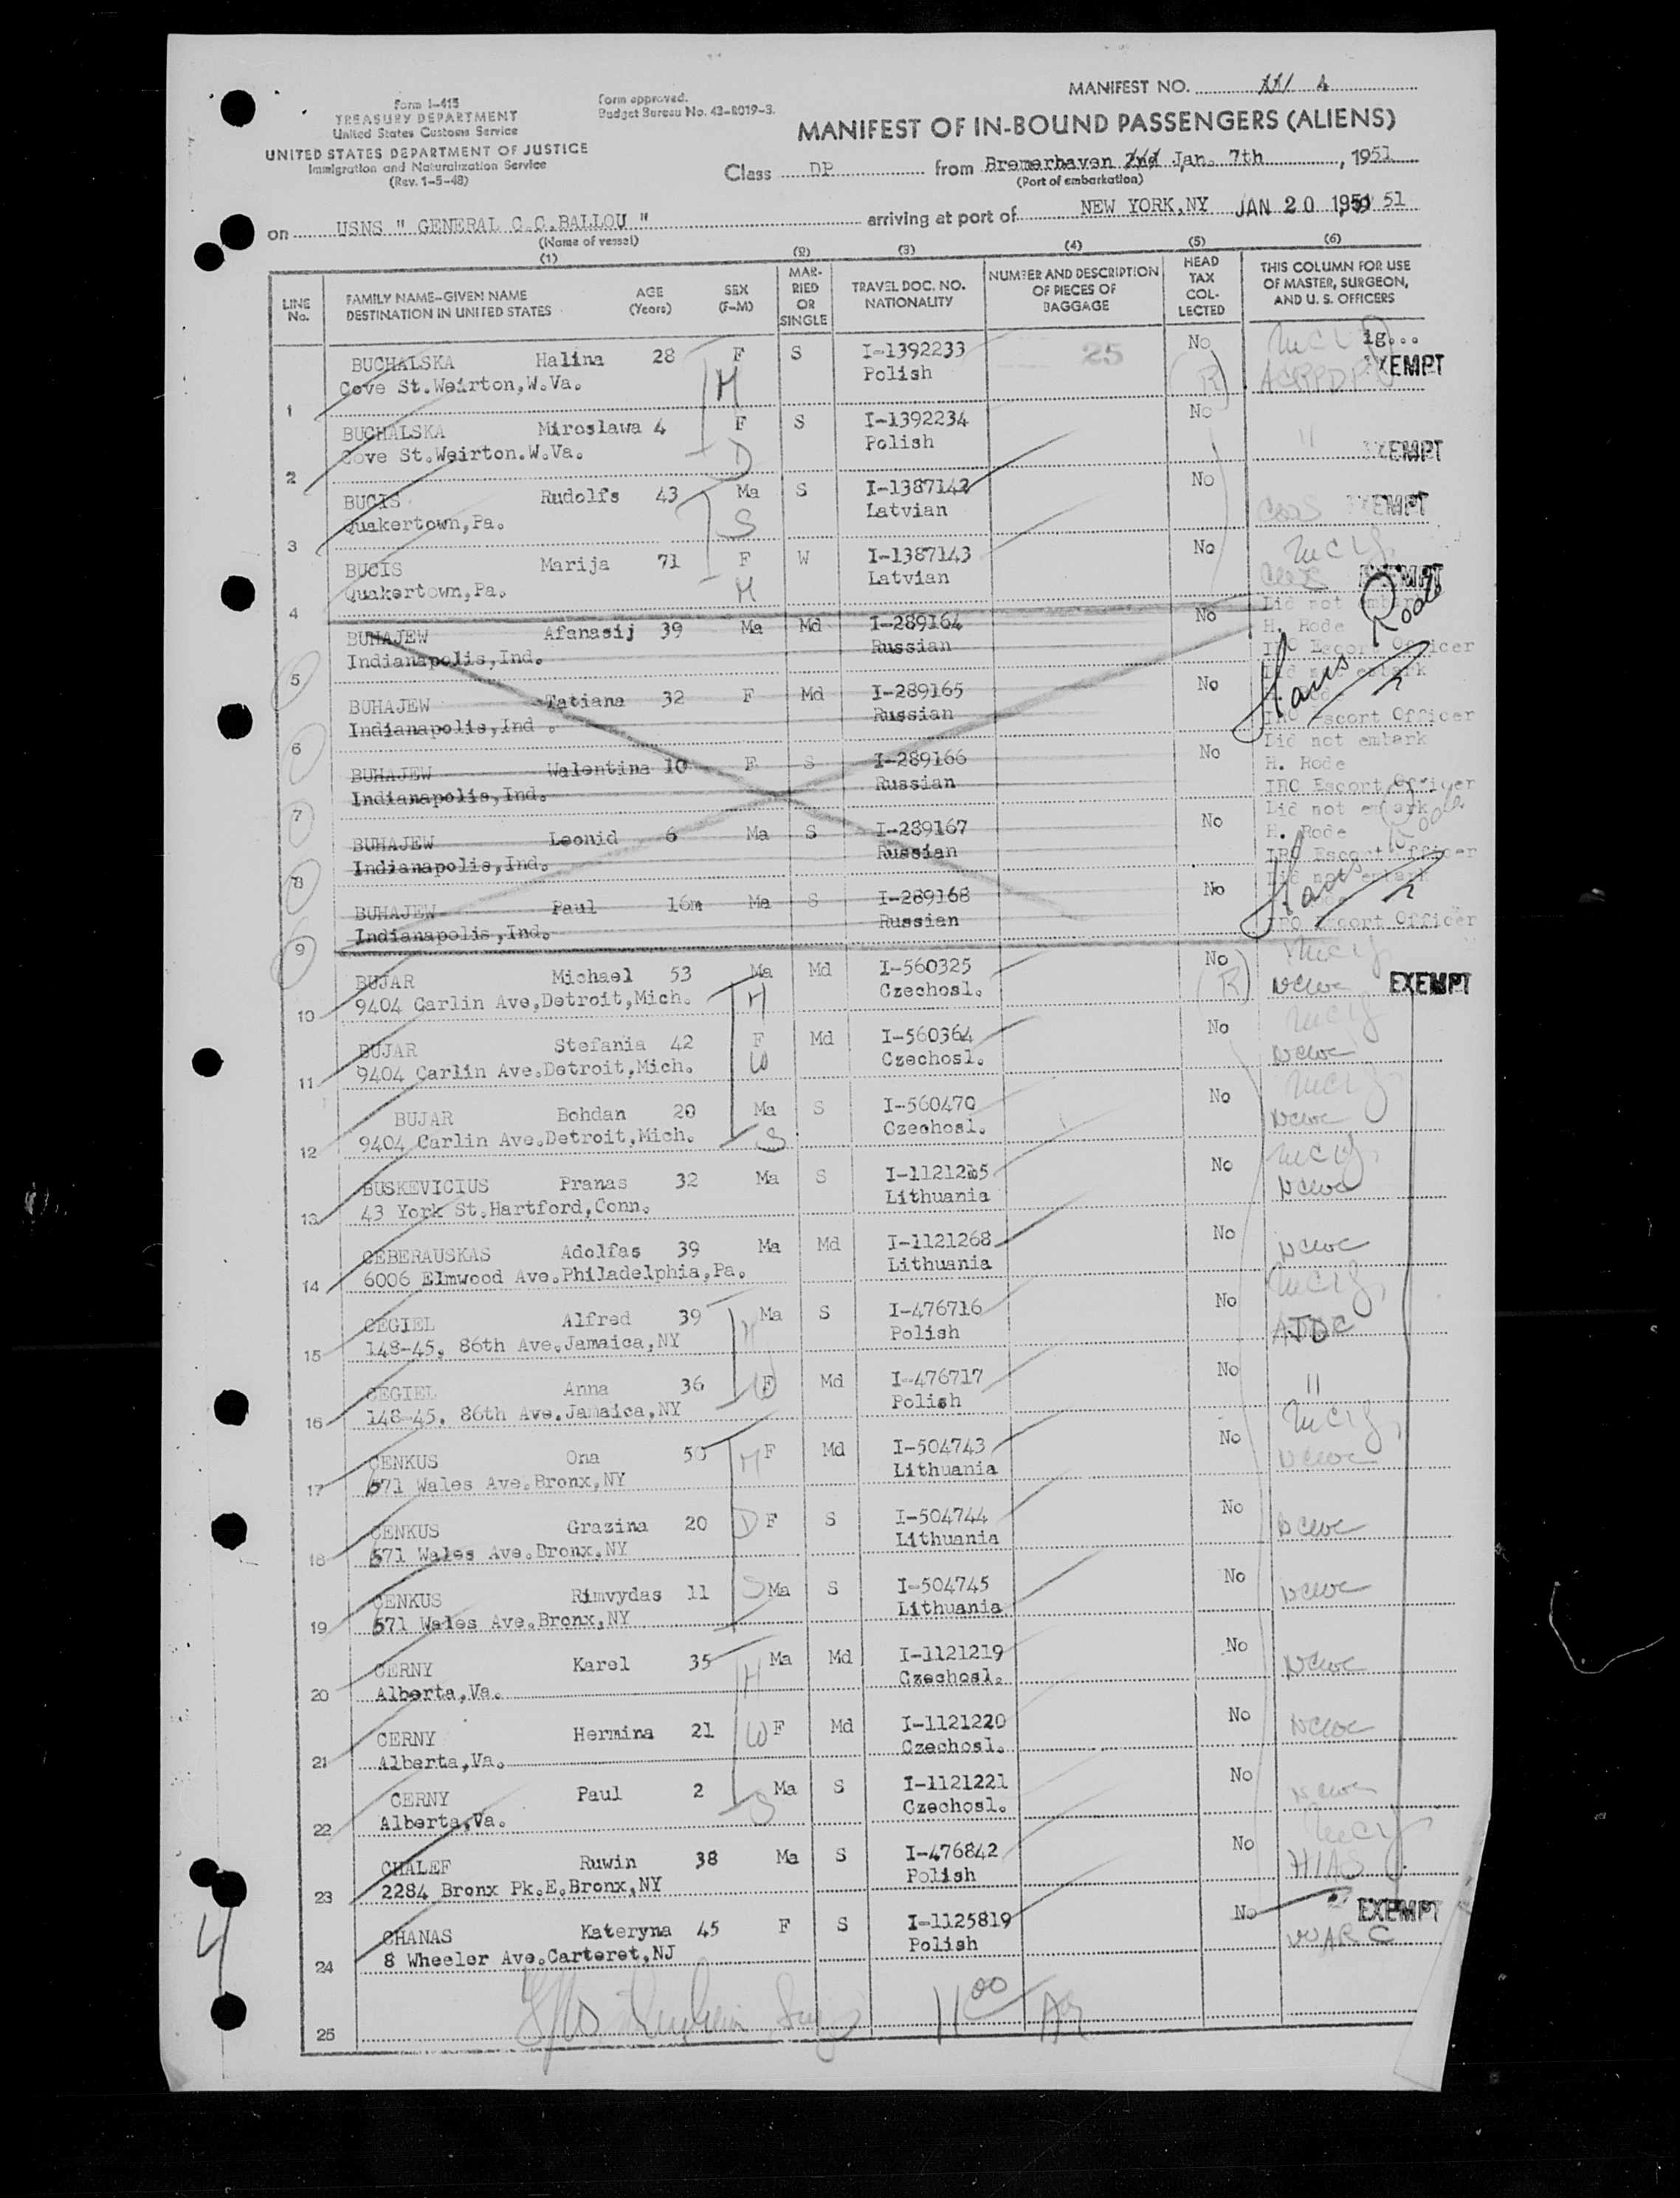 MANIFEST NO. 4
Form I-415
TREASURY DEPARTMENT
United States Customs Service
UNITED STATES DEPARTMENT OF JUSTICE
Immigration and Naturalization Service
(Rev. 1-5-48)
Form approved.
Budget Bureau No. 43-R019-3.
MANIFEST OF IN-BOUND PASSENGERS (ALIENS)
Class DP from Bremerhaven 2nd Jan. 7th, 1951
(Port of embarkation)
on USNS " GENERAL C.C.BALLOU " arriving at port of NEW YORK,NY JAN 20 1951 51
(Name of vessel)
(1) (2) (3) (4) (5) (6)
LINE No. FAMILY NAME—GIVEN NAME DESTINATION IN UNITED STATES AGE (Years) SEX (F-M) MARRIED OR SINGLE TRAVEL DOC. NO. NATIONALITY NUMBER AND DESCRIPTION OF PIECES OF BAGGAGE HEAD TAX COLLECTED THIS COLUMN FOR USE OF MASTER, SURGEON, AND U. S. OFFICERS
BUCHALSKA Halina 28 F S I-1392233 25 No
1 Cove St.Weirton,W.Va. H Polish (R) EXEMPT
BUCHALSKA Miroslawa 4 F S I-1392234 No
2 Cove St.Weirton.W.Va. D Polish " EXEMPT
BUCIS Rudolfs 43 Ma S I-1387142 No
3 Quakertown,Pa. S Latvian EXEMPT
BUCIS Marija 71 F W I-1387143 No
4 Quakertown,Pa. M Latvian EXEMPT
BUHAJEW Afanasij 39 Ma Md I-289164 No Did not embark
H. Rode
5 Indianapolis,Ind. Russian IRO Escort Officer
BUHAJEW Tatiana 32 F Md I-289165 No Did not embark
6 Indianapolis,Ind . Russian IRO Escort Officer
Hans Roode
BUHAJEW Walentina 10 F S I-289166 No Did not embark
H. Rode
7 Indianapolis,Ind. Russian IRO Escort Officer
BUHAJEW Leonid 6 Ma S I-289167 No Did not embark
H. Rode
8 Indianapolis,Ind. Russian IRO Escort Officer
BUHAJEW Paul 16m Ma S I-289168 No Did not embark
9 Indianapolis,Ind. Russian IRO Escort Officer
Hans Roode
BUJAR Michael 53 Ma Md I-560325 No
10 9404 Carlin Ave,Detroit,Mich. H Czechosl. (R) NCWC EXEMPT
BUJAR Stefania 42 F Md I-560364 No
11 9404 Carlin Ave.Detroit,Mich. W Czechosl. NCWC
BUJAR Bohdan 20 Ma S I-560470 No
12 9404 Carlin Ave.Detroit,Mich. S Czechosl. NCWC
BUSKEVICIUS Pranas 32 Ma S No
13 43 York St.Hartford,Conn. Lithuania NCWC
CEBERAUSKAS Adolfas 39 Ma Md I-1121268 No
14 6006 Elmwood Ave.Philadelphia,Pa. Lithuania NCWC
CEGIEL Alfred 39 Ma S I-476716 No
15 148-45, 86th Ave.Jamaica,NY H Polish AJDC
CEGIEL Anna 36 F Md I-476717 No
16 148-45, 86th Ave.Jamaica,NY W Polish "
CENKUS Ona 50 M F Md I-504743 No
17 571 Wales Ave.Bronx,NY Lithuania NCWC
CENKUS Grazina 20 D F S I-504744 No
18 571 Wales Ave.Bronx.NY Lithuania NCWC
CENKUS Rimvydas 11 S Ma S I-504745 No
19 571 Wales Ave.Bronx,NY Lithuania NCWC
CERNY Karel 35 Ma Md I-1121219 No
20 Alberta,Va. H Czechosl. NCWC
CERNY Hermina 21 W F Md I-1121220 No
21 Alberta,Va. Czechosl. NCWC
CERNY Paul 2 Ma S I-1121221 No
22 Alberta,Va. S Czechosl. NCWC
CHALEF Ruwin 38 Ma S I-476842 No
23 2284 Bronx Pk.E.Bronx,NY Polish HIAS
CHANAS Kateryna 45 F S I-1125819 No EXEMPT
24 8 Wheeler Ave.Carteret,NJ Polish WARC
4
25 11 00